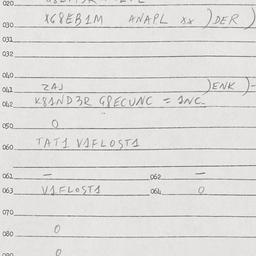 020.
030 X68EB1M ANAPL xx )DER )
030.
031
032
040
041 ZAJ )ENK )-
042 K81ND3R G8ECUNC = 1NC
050 0
060 TAT1 V1FLOST1
061 — 062 —
063 V1FLOST1 064 0
070
080 0
090 0